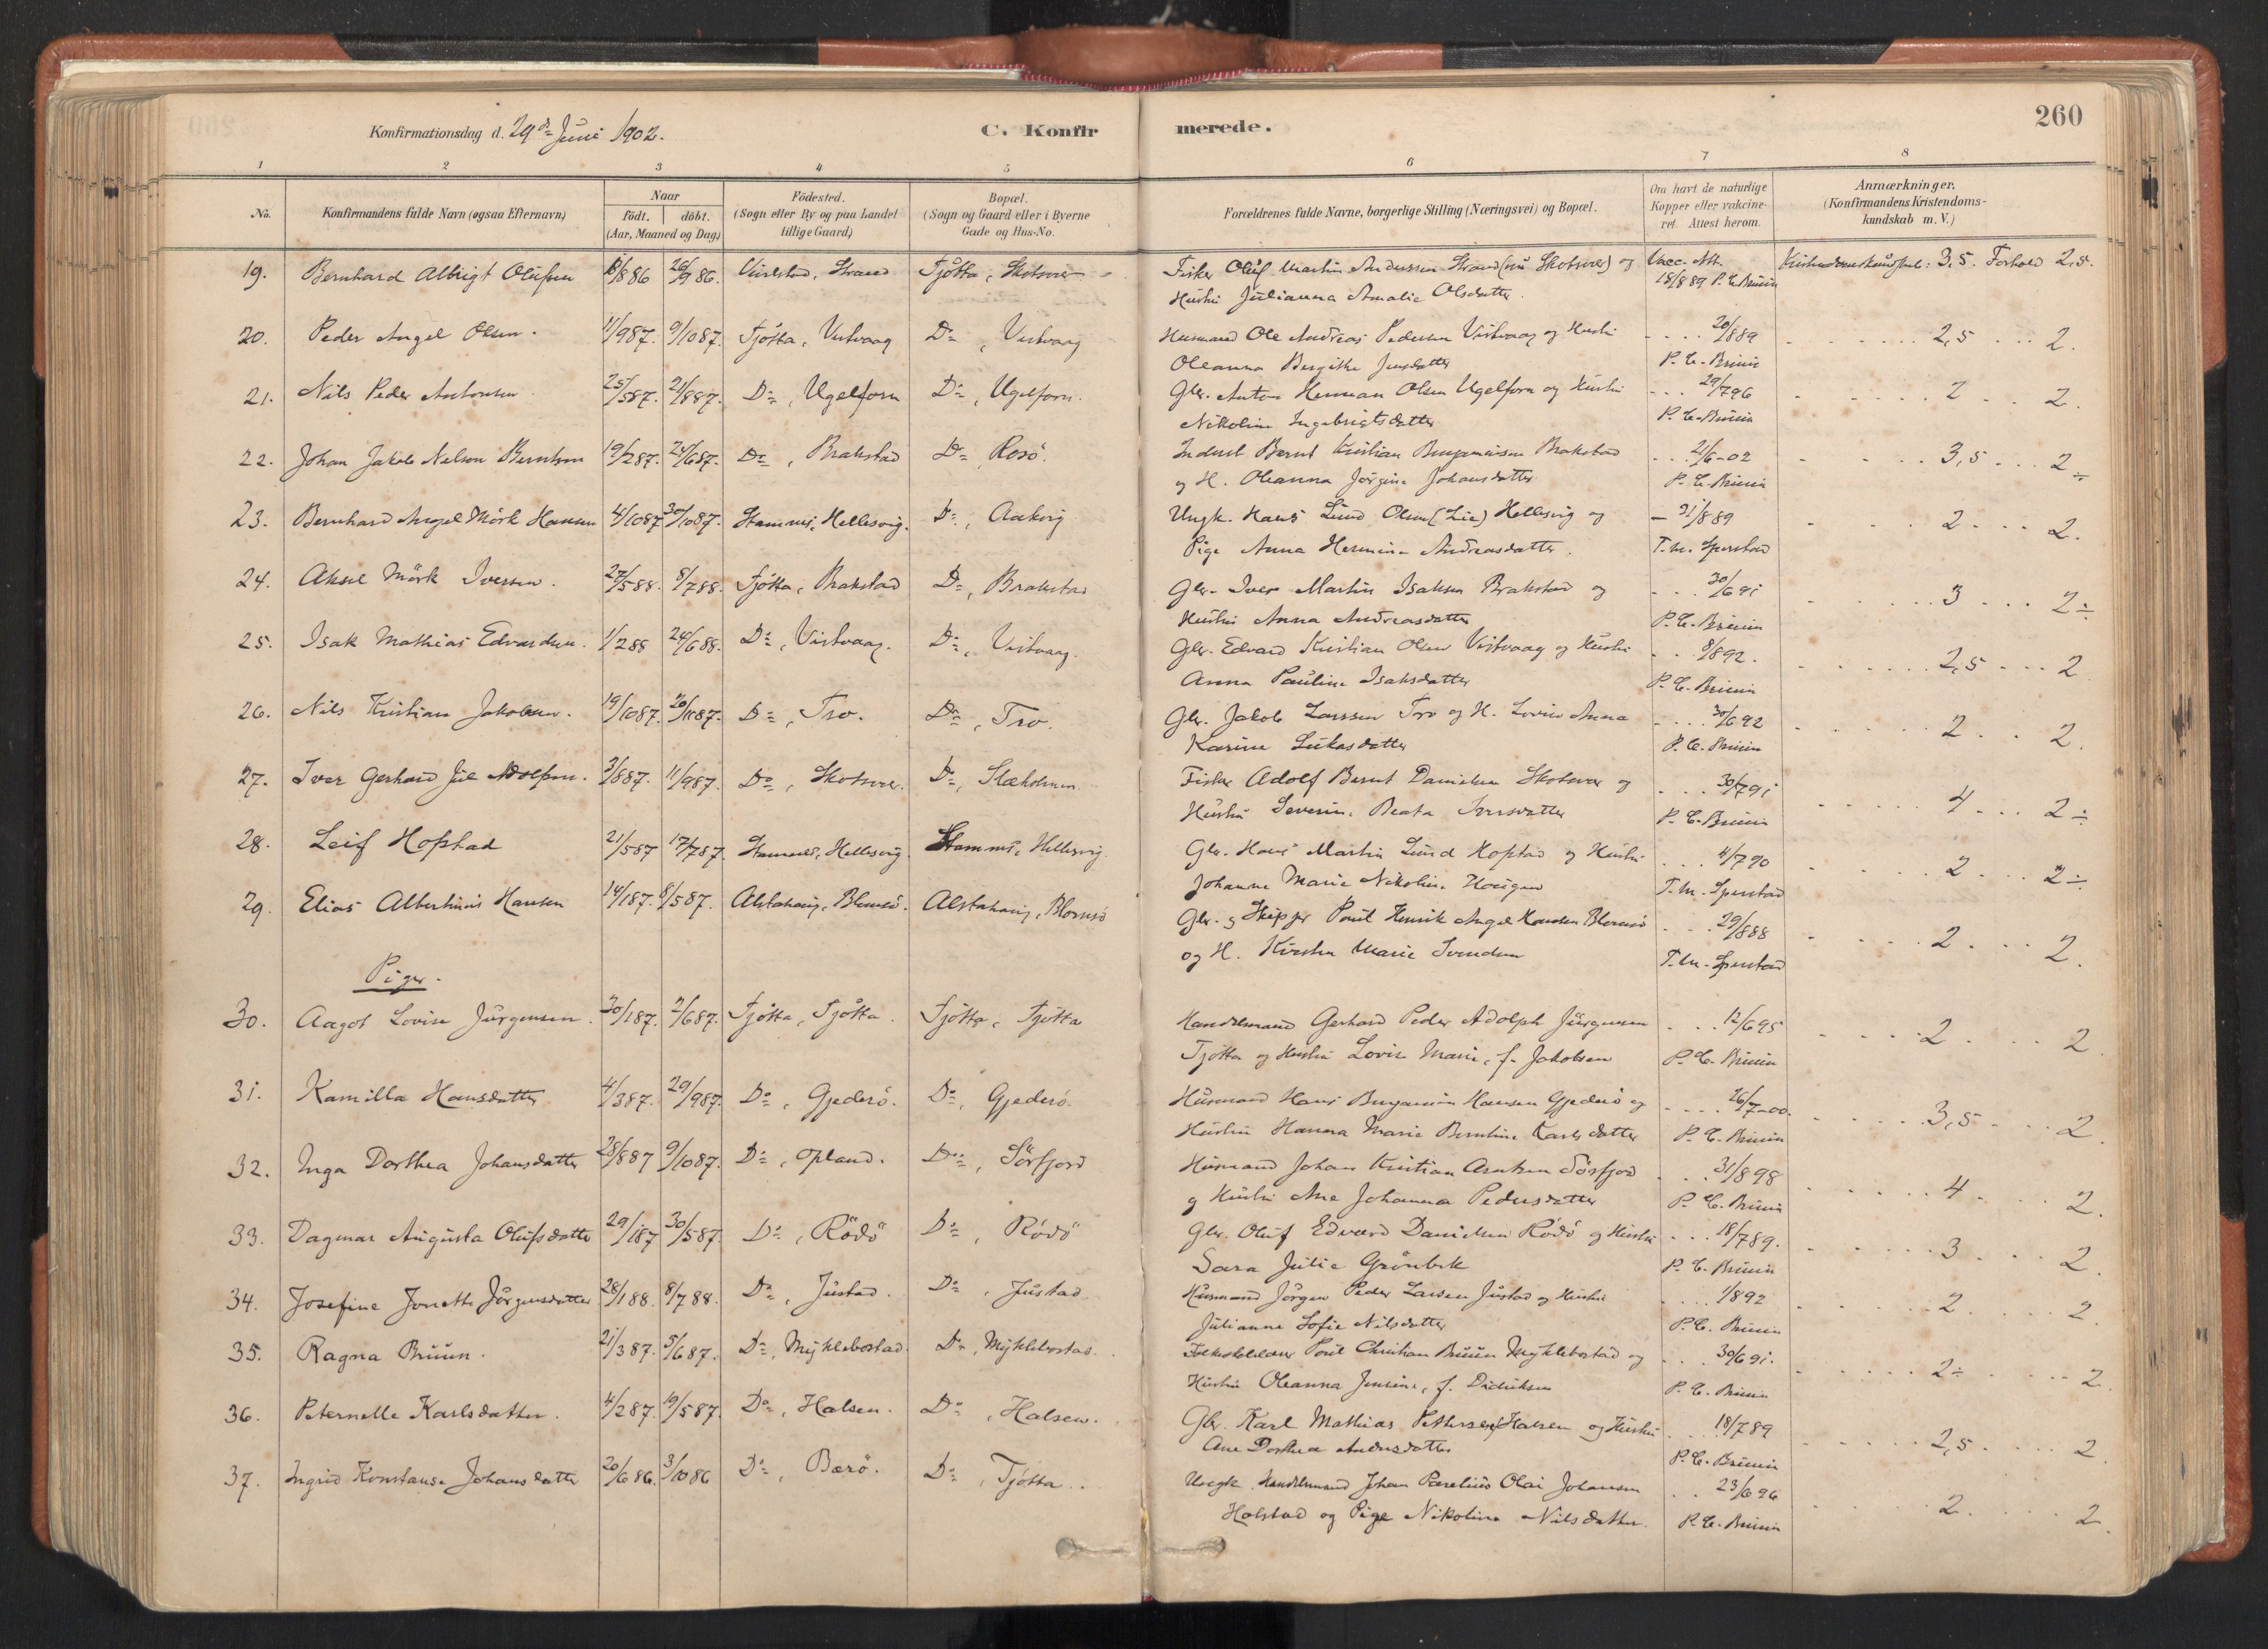 260
Konfirmationsdag d. 29de Juni 1902.
C. Konfirmerede.
1 2 3 4 5 6 7 8
No.
Konfirmandens fulde Navn (ogsaa Efternavn)
Naar
födt. döbt.
(Aar, Maaned og Dag)
Födested.
(Sogn eller By og paa Landet
tillige Gaard)
Bopæl.
(Sogn og Gaard eller i Byerne
Gade og Hus-No.
Forældrenes fulde Navne, borgerlige Stilling (Næringsvei) og Bopæl.
Om havt de naturlige
Kopper eller vakcine-
ret. Attest herom.
Anmærkninger.
(Konfirmandens Kristendoms-
kundskab m. V.)
19. Bernhard Albrigt Olufsen 8/886 26/986. Strand Tjøtta, Skotsvær Fisker Oluf Martin Anderssen Strand (nu Skotsvær) og Vacc. Att. 3,5. Forhold 2,5.
Hustru Julianna Amalie Olsdatter. 18/889 P. C. Bruun
20. Peder Angel Olsen. 11/987. 9/1087. Tjøtta, Vistvaag Do, Vistvaag Husmand Ole Andreas Pedersen Vistvaag og Hustru 20/889 2,5 2.
Oleanna Bergithe Jensdatter P. C. Bruun
21. Nils Peder Antonsen 25/587. 21/887. Do, Ugelforn Do, Ugelforn. Gbr. Anton Herman Olsen Ugelforn og Hustru 29/796 2 2.
Nikoline Ingebrigtsdatter P. C. Bruun
22. Johan Jakob Nelson Berntsen 19/287. 24/687. Do, Brakstad Do, Rosö. Inderst Bernt Kristian Benjaminsen Brakstad 21/6-02 3,5 2÷
og H. Oleanna Jørgine Johansdatter P. C. Bruun
23. Bernhard Angel Mörk Hansen 4/1087 30/1087. Stamnes, Hellesvig. Do, Aakvig Ungk. Hans Lund Olsen (Lie) Hellesvig og – 31/889 2 2.
Pige Anna Hermine Andreasdatter. T. M. Sperstad
24. Aksel Mörk Iversen. 27/588. 8/788. Tjøtta, Brakstad Do, Brakstad Gbr. Iver Martin Isaksen Brakstad og 30/691 3 2÷
Hustru Anna Andreasdatter P. C. Bruun
25. Isak Mathias Edvardsen. 1/288 24/688. Do, Vistvaag. Do, Vistvaag. Gbr. Edvard Kristian Olsen Vistvaag og Hustru 8/892. 2,5 2
Anna Pauline Isaksdatter P. C. Bruun
26. Nils Kristian Jakobsen. 19/1087. 20/1187. Do, Tro. Do, Tro. Gbr. Jakob Larssen Tro og H. Lovise Anna 30/692 2 2.
Karine Lukasdatter P. C. Bruun
27. Iver Gerhard Jul Adolfsen. 3/887. 11/987. Do, Skotsvær. Do, Slakholmen. Fisker Adolf Bernt Danielsen Skotsvær og 30/791 4 2÷
Hustru Severine Beata Iversdatter P. C. Bruun
28. Leif Hofstad 21/587 17/787. Stamnes, Hellesvig. Stamnes, Hellesvig. Gbr. Hans Martin Lund Hofstad og Hustru 4/790 2 2÷
Johanne Marie Nikoline Hougen T. M. Sperstad
29. Elias Albertinus Hansen 14/187. 8/587. Alstahaug, Blomsö. Alstahaug, Blomsö Gbr. og Skipper Poul Henrik Angel Hansen Blomsö 29/888 2 2.
og H. Kirsten Marie Svendsen T. M. Sperstad
Piger.
30. Aagot Lovise Jürgensen. 30/187. 2/687. Tjøtta, Tjøtta. Tjøtta, Tjøtta Handelsmand Gerhard Peder Adolph Jürgensen 12/695 2 2.
Tjøtta og Hustru Lovise Marie, f. Jakobsen P. C. Bruun
31. Kamilla Hansdatter 4/387. 29/987. Do, Gjederö. Do, Gjederö. Husmand Hans Benjamin Hansen Gjederö og 26/7-00. 3,5 2.
Hustru Hanna Marie Berntine Karlsdatter P. C. Bruun
32. Inga Dorthea Johansdatter 28/887 9/1087. Do, Opland. Do, Sörfjord Husmand Johan Kristian Arntsen Sörfjord 31/898 4 2.
og Hustru Ane Johanna Pedersdatter P. C. Bruun
33. Dagmar Augusta Olufsdatter 29/187 30/587. Do, Rödö Do, Rödö Gbr. Oluf Edvard Danielsen Rödö og Hustru 18/789. 3 2.
Sara Julie Grönbek P. C. Bruun
34. Josefine Jonette Jörgensdatter 28/188. 8/788. Do, Justad. Do, Justad. Husmand Jörgen Peder Larsen Justad og Hustru 1/892 2 2.
Julianne Sofie Nilsdatter P. C. Bruun
35. Ragna Bruun. 21/387. 5/687. Do, Myklebostad. Do, Myklebostad. Poul Christian Bruun Myklebostad og 30/691. 2÷ 2.
Hustru Oleanna Jensine, f. Didriksen P. C. Bruun
36. Peternelle Karlsdatter. 4/287. 19/587. Do, Halsen. Do, Halsen. Gbr. Karl Mathias Pettersen Halsen og Hustru 18/789 2,5 2
Ane Dorthea Andersdatter P. C. Bruun
37. Ingrid Konstanse Johansdatter 20/686. 3/1086 Do, Bærö. Do, Tjøtta. Ungk. Handelsmand Johan Olai Johansen 23/696 2 2.
Holstad og Pige Nikoline Nilsdatter. P. C. Bruun